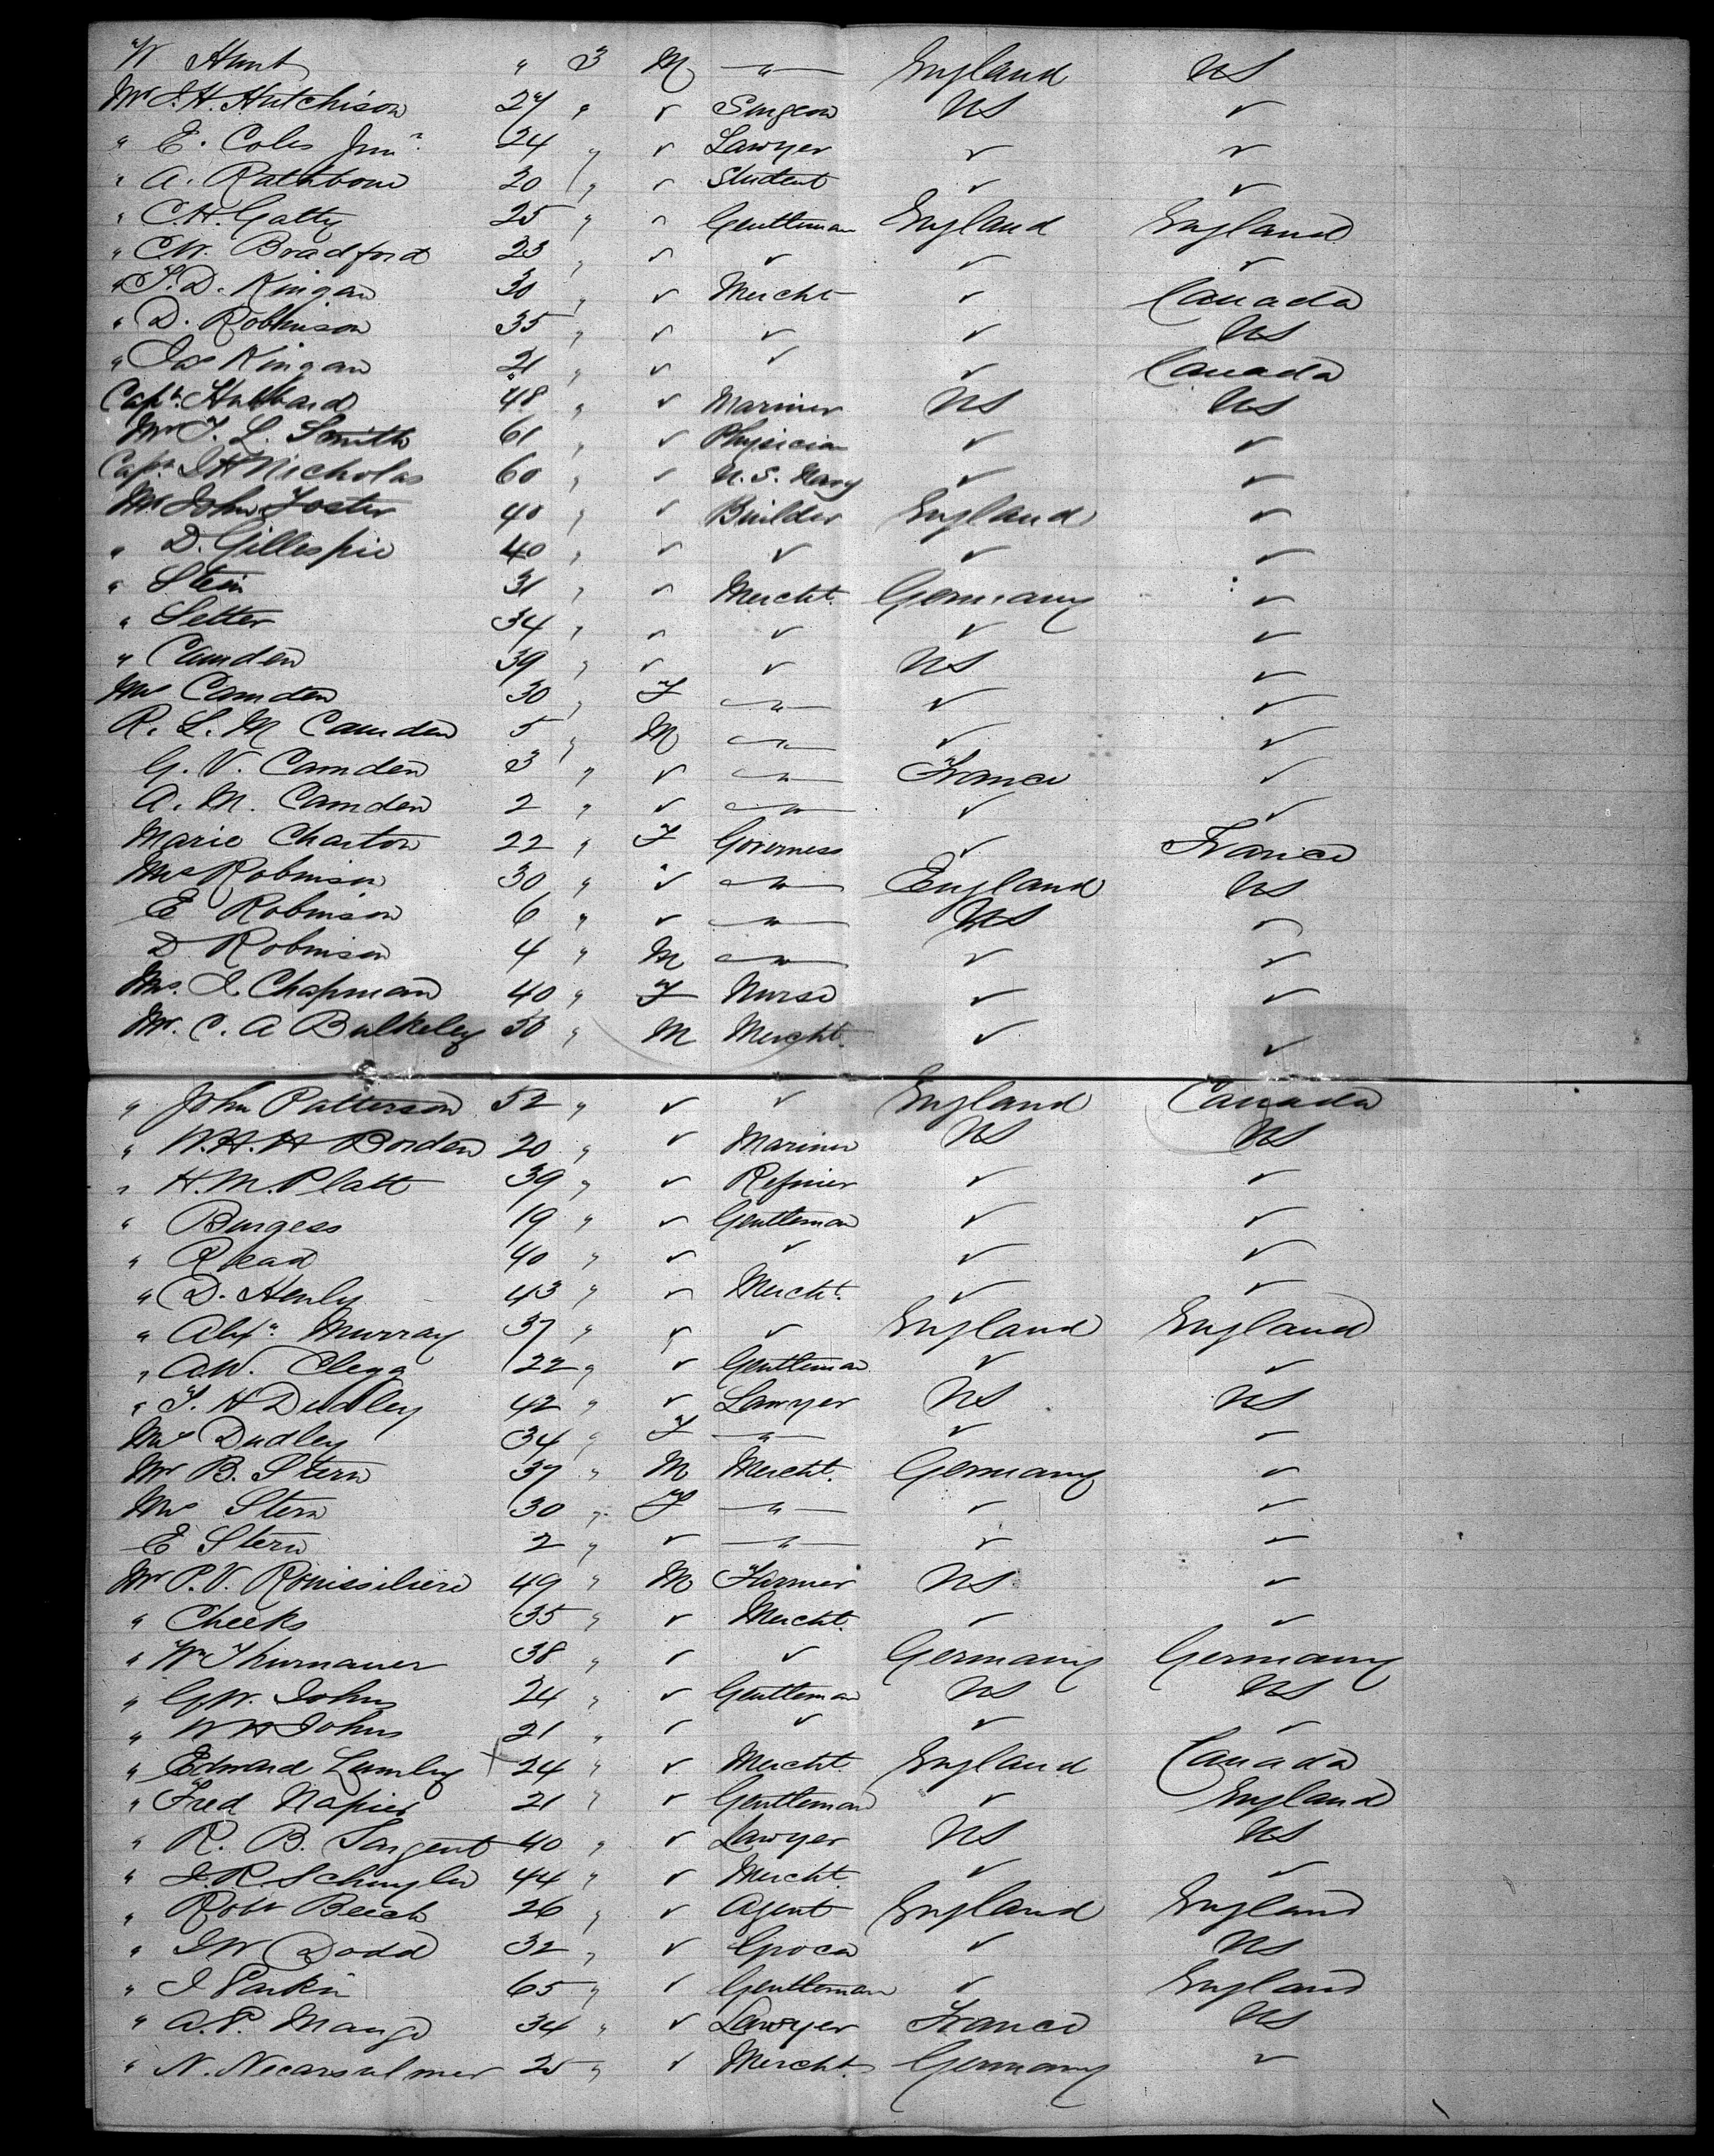 W Hunt " 3 M — " — England US
Mr J. H. Hutchison 27 " ✓ Surgeon US ✓
" E. Coles Junr 24 " ✓ Lawyer ✓ ✓
" A. Rathbone 20 " ✓ Student ✓ ✓
" C. H. Gatty 25 " ✓ Gentleman England England
" C W. Bradford 23 " ✓ ✓ ✓ ✓
" T. D. Kingan 30 " ✓ Mercht ✓ Canada
" D. Robinson 35 " ✓ ✓ ✓ US
" Jas Kingan 21 " ✓ ✓ ✓ Canada
Capt. Hubbard 48 " ✓ Mariner US US
Mr T. L. Smith 61 " ✓ Physician ✓ ✓
Capt. J H Nicholas 60 " ✓ U. S. Navy ✓ ✓
Mr John Foster 40 " ✓ Builder England ✓
" D. Gillespie 40 " ✓ ✓ ✓ ✓
" Stein 31 " ✓ Mercht. Germany ✓
" Setter 34 " ✓ ✓ ✓ ✓
" Camden 39 " ✓ ✓ US ✓
Mrs Camden 30 " F — " — ✓ ✓
R. L. M Camden 5 " M — " — ✓ ✓
G. V. Camden 3 " ✓ — " — France ✓
A. M. Camden 2 " ✓ — " — ✓ ✓
Marie Charton 22 " F Governess ✓ France
Mrs Robinson 30 " ✓ — " — England US
E Robinson 6 " ✓ — " — US ✓
D Robinson 4 " M — " — ✓ ✓
Mrs. J. Chapman 40 " F Nurse ✓ ✓
Mr. C. A Bulkeley 30 " M Mercht. ✓ ✓
" John Patterson 52 " ✓ ✓ England Canada
" W. H. H Borden 20 " ✓ Mariner US US
" H. M. Platt 39 " ✓ Refiner ✓ ✓
" Burgess 19 " ✓ Gentleman ✓ ✓
" Read 40 " ✓ ✓ ✓ ✓
" D. Henly 43 " ✓ Mercht. ✓ ✓
" Alexr. Murray 37 " ✓ ✓ England England
" A W. Clegg 22 " ✓ Gentleman ✓ ✓
" T. H Dudley 42 " ✓ Lawyer US US
Mrs Dudley 34 " F — " — ✓ ✓
Mr B. Stern 37 " M Mercht. Germany ✓
Mrs Stern 30 " F — " — ✓ ✓
E Stern 2 " ✓ — " — ✓ ✓
Mr P. V. 49 " M Farmer US ✓
" Cheeks 35 " ✓ Mercht. ✓ ✓
" Wm Thurnauer 38 " ✓ ✓ Germany Germany
" G W. Johns 24 " ✓ Gentleman US US
" W H Johns 21 " ✓ ✓ ✓ ✓
" Edward Lumley 24 " ✓ Mercht England Canada
" Fred Napier 21 " ✓ Gentleman ✓ England
" R. B. Sargent 40 " ✓ Lawyer US US
" J. R. Schuyler 44 " ✓ Mercht. ✓ ✓
" Robt Beech 26 " ✓ Agent England England
" J W Dodd 32 " ✓ Grocer ✓ US
" J Parkin 65 " ✓ Gentleman ✓ England
" A. P. Mange 34 " ✓ Lawyer France US
" N. Necarsulmer 25 " ✓ Mercht. Germany ✓